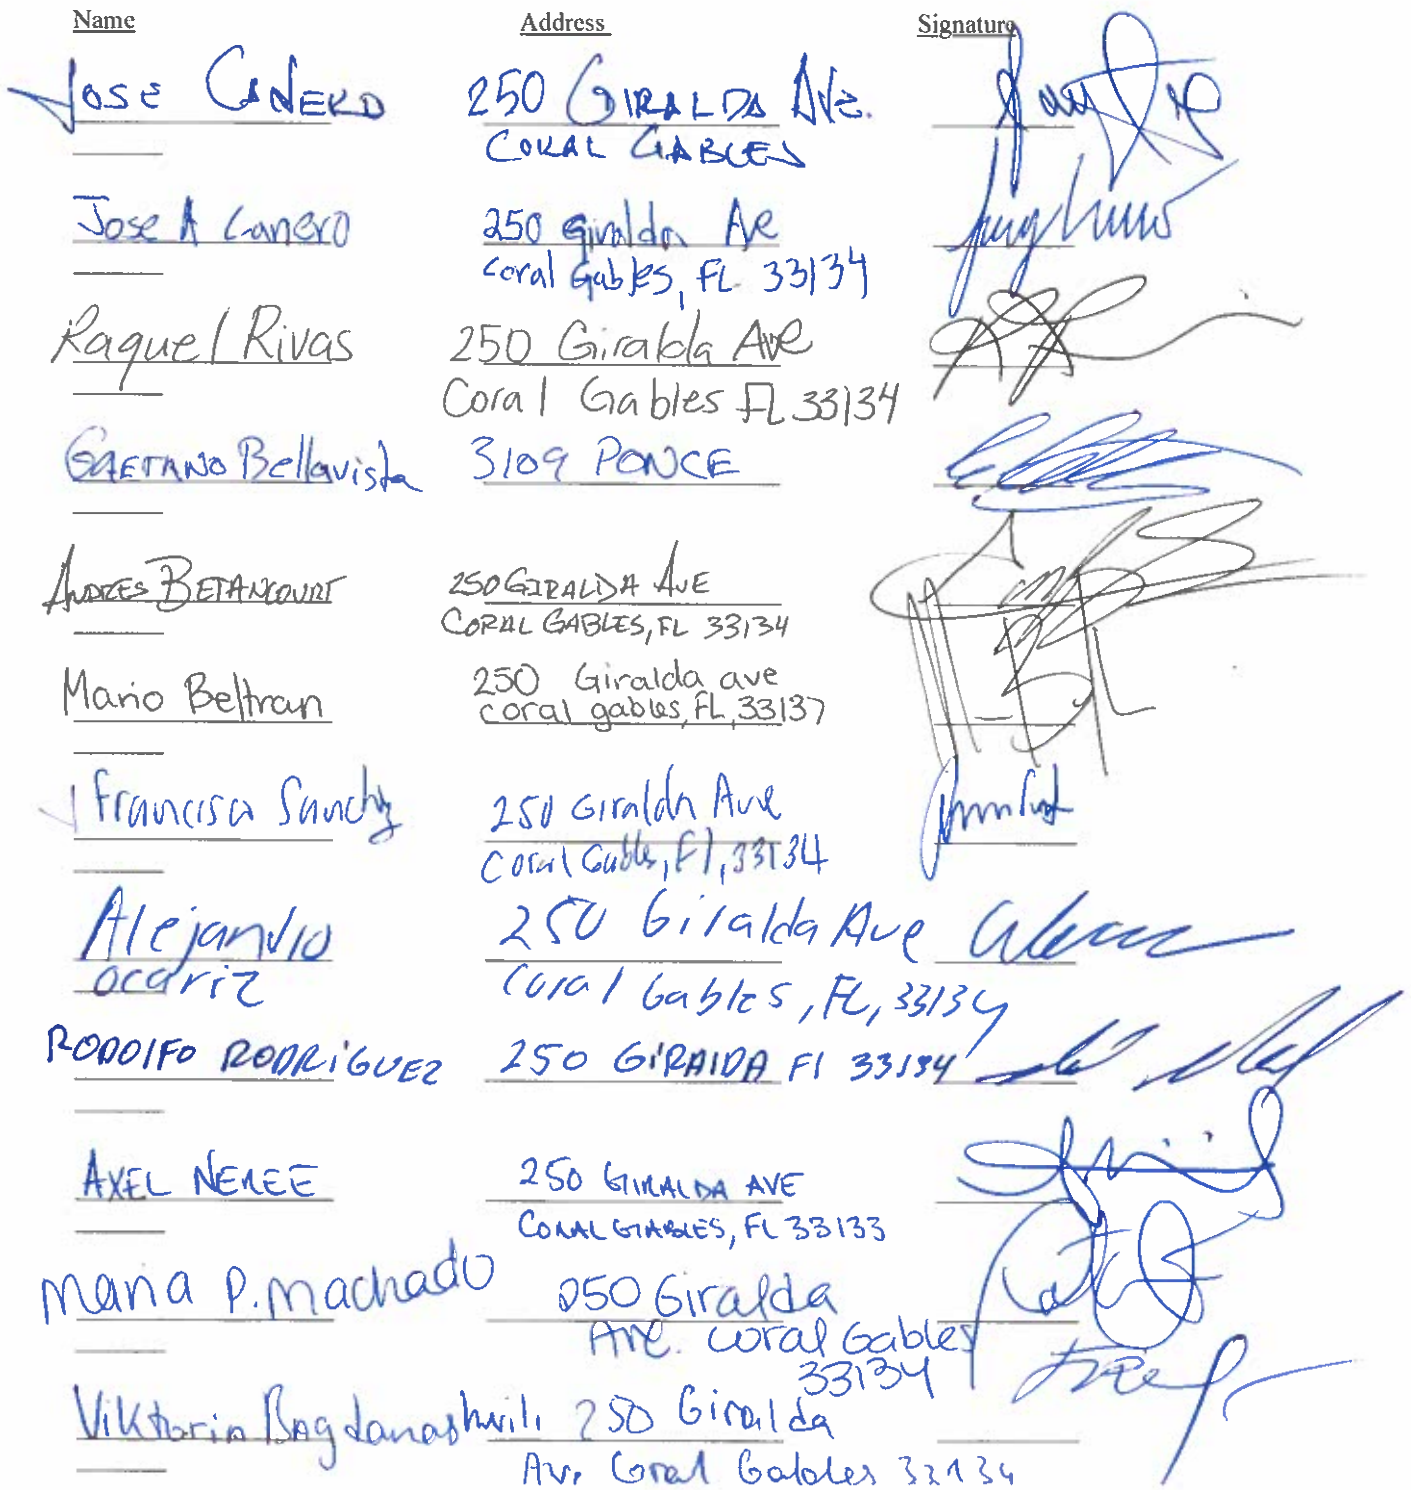 Name Address Signature
JOSE CANERO 250 GIRALDA AVE.
CORAL GABLES
Jose A Canero 250 Giralda Ave
Coral Gables, FL 33134
Raquel Rivas 250 Giralda Ave
Coral Gables FL 33134
GAETANO Bellavista 3109 PONCE
ANDRES BETANCOURT 250 GIRALDA AVE
CORAL GABLES, FL 33134
Mario Beltran 250 Giralda ave
coral gables, FL, 33137
Francisco Sanchez 250 Giralda Ave
Coral Gables, Fl, 33134
Alejandro 250 Giralda Ave
ocariz Coral Gables, FL, 33134
RODOlFO RODRiGUEZ 250 GiRAlDA Fl 33134
AXEL NEREE 250 GIRALDA AVE
CORAL GABLES, FL 33133
Maria P. Machado 250 Giralda
Ave. Coral Gables
33134
Viktoria Bagdanashvili 250 Giralda
Ave Coral Gables 33134